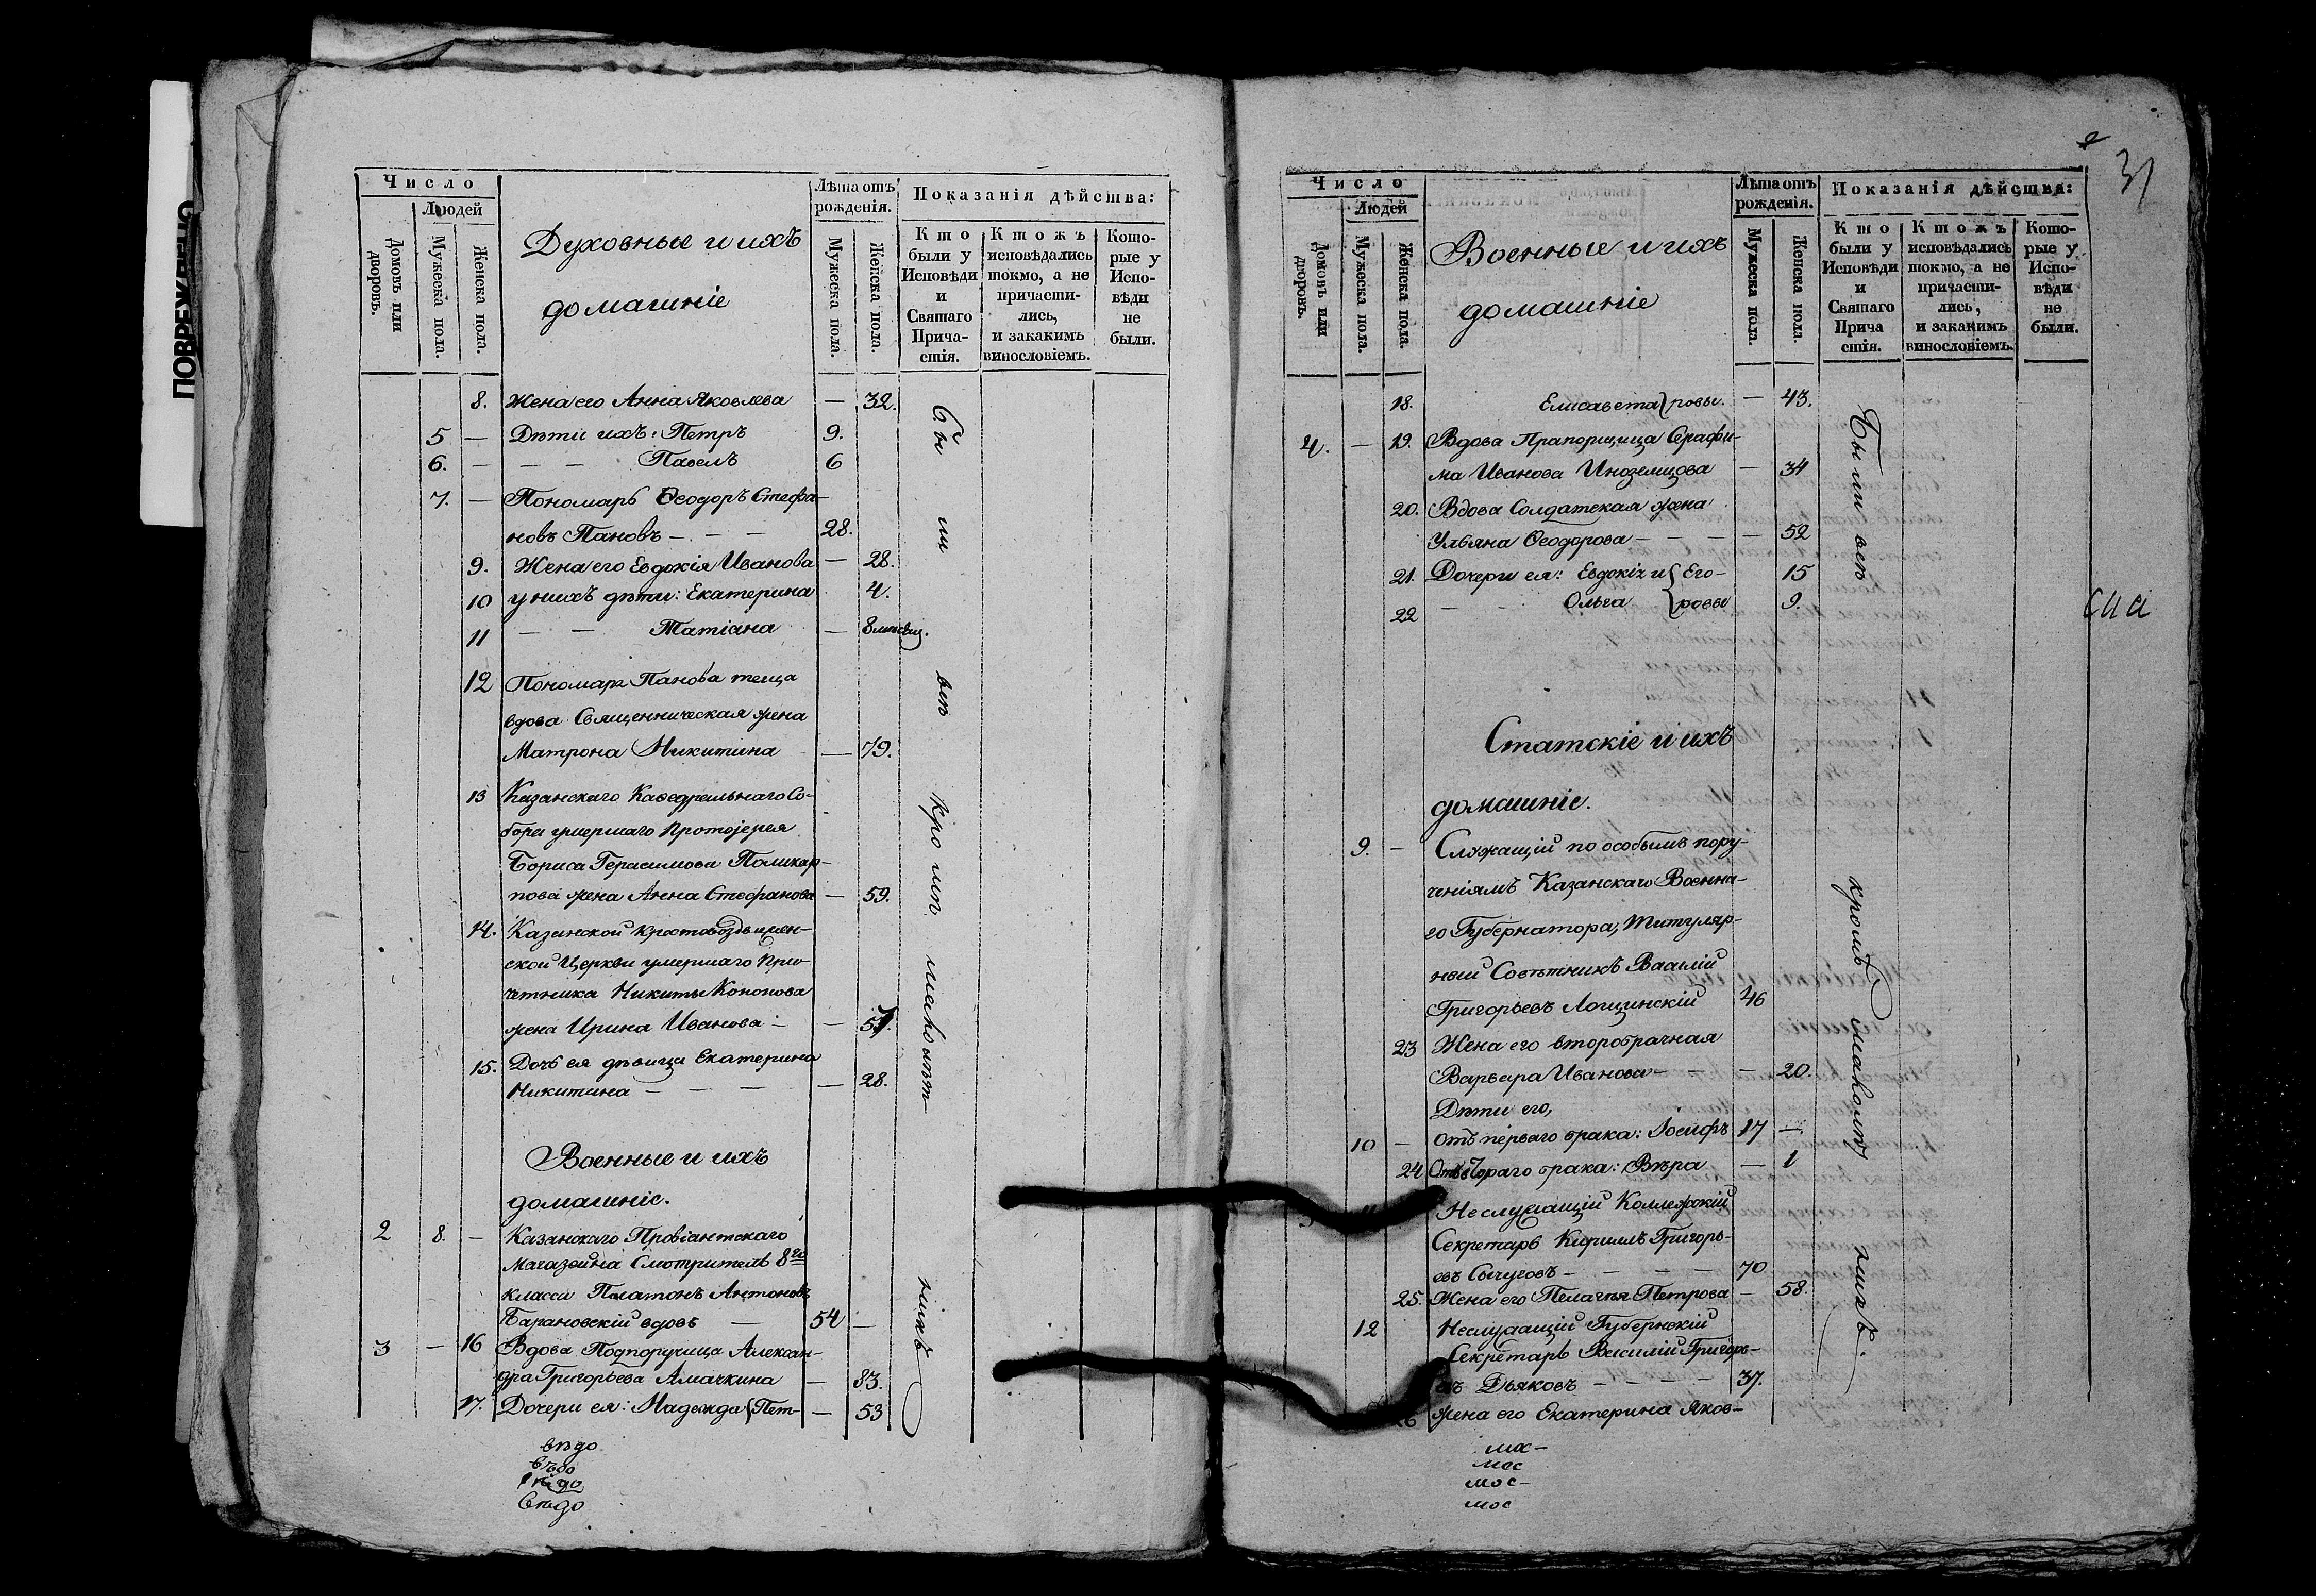 ПОВРЕЖДЕНО
Число
Людей
Домовъ или дворовъ.
Мужеска пола.
Женска пола.
Духовные и ихъ
домашніе
Лѣта отъ рожденія.
Мужеска пола.
Женска пола.
Показанія дѣйства:
Кто были у Исповѣди и Святаго Прича-стія.
Ктожъ исповѣдались токмо, а не причасти-лись, и закакимъ винословіемъ.
Кото-рые у Испо-вѣди не были.
8. Жена его Анна Яковлева — 32.
5 — Дѣти ихъ: Петръ 9.
6. — — — Павелъ 6
7. — Пономарь Ѳеодоръ Стефа-
новъ Пановъ — — — 28.
9. Жена его Евдокія Иванова — 28.
10 у нихъ дѣти: Екатерина 4.
11 — — Татіана — 8 мѣсяц.
12 Пономаря Панова теща
вдова Священническая жена
Матрона Никитина — 79.
13 Казанскаго Каѳедральнаго Со-
бора умершаго Протоіерея
Бориса Герасимова Поликар-
пова жена Анна Стефанова — 59.
14. Казанской Крестовоздвижен-
ской Церкви умершаго При-
четника Никиты Кононова
жена Ирина Иванова — — 57.
15. Дочь ея дѣвица Екатерина
Никитина — — — — 28.
Военные и ихъ
домашніе.
2 8. — Казанскаго Провіантскаго
Магазеина Смотритель 8го
класса Платонъ Антоновъ
Барановскій вдовъ — 54 —
3 — 16 Вдова Подпоручица Алексан-
дра Григорьева Амачкина — 83.
17. Дочери ея: Надежда { Пет- — 53
Были всѣ кромѣ малолѣтнихъ
вѣдо
вѣдо
вѣдо
вѣдо
31
Число
Людей
Домовъ или дворовъ.
Мужеска пола.
Женска пола.
Военные и ихъ
домашніе
Лѣта отъ рожденія.
Мужеска пола.
Женска пола.
Показанія дѣйства:
Кто были у Исповѣди и Святаго Прича стія.
Ктожъ исповѣдались токмо, а не причасти-лись, и закакимъ винословіемъ.
Кото-рые у Испо-вѣди не были.
18. Елисавета } ровы. — 43.
4. — 19. Вдова Прапорщица Серафи-
ма Иванова Иноземцова — 34
20. Вдова Солдатская жена
Ульяна Ѳеодорова — — — — 52
21. Дочери ея: Евдокія и { Его- 15
22 — Ольга { ровы 9.
Статскіе и ихъ
домашніе.
9. — Служащій по особымъ пору-
ченіямъ Казанскаго Военна-
го Губернатора, Титуляр-
ный Совѣтникъ Василій
Григорьевъ Лощинскій 46
23 Жена его второбрачная
Варвара Иванова — — — 20.
Дѣти его,
10 — отъ перваго брака: Іосифъ 17 —
24 Отъ втораго брака: Вѣра — 1
Неслужащій Коллежскій
Секретарь Кириллъ Григорь-
евъ Сычуговъ — — — — 70
25. Жена его Пелагѣя Петрова — 58.
12 Неслужащій Губернскій
Секретарь Василій Григорь-
евъ Дьяковъ — — — — 37.
26 жена его Екатерина Яков-
Были всѣ кромѣ малолѣтнихъ.
мос-
мос
мос-
мос